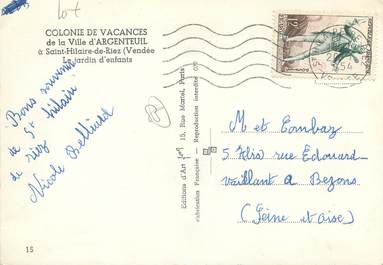 lot
COLONIE DE VACANCES
de la Ville d'ARGENTEUIL
à Saint-Hilaire-de-Riez (Vendée
Le jardin d'enfants
Bons souvenirs
de St hilair
de riez
Nicole
Editions d'Art 15, Rue Martel, Paris
Fabrication Française - Reproduction interdite
1954
M et Eombaz
5 rue Edouard-
vaillant a Bezons
(Seine et oise)
15